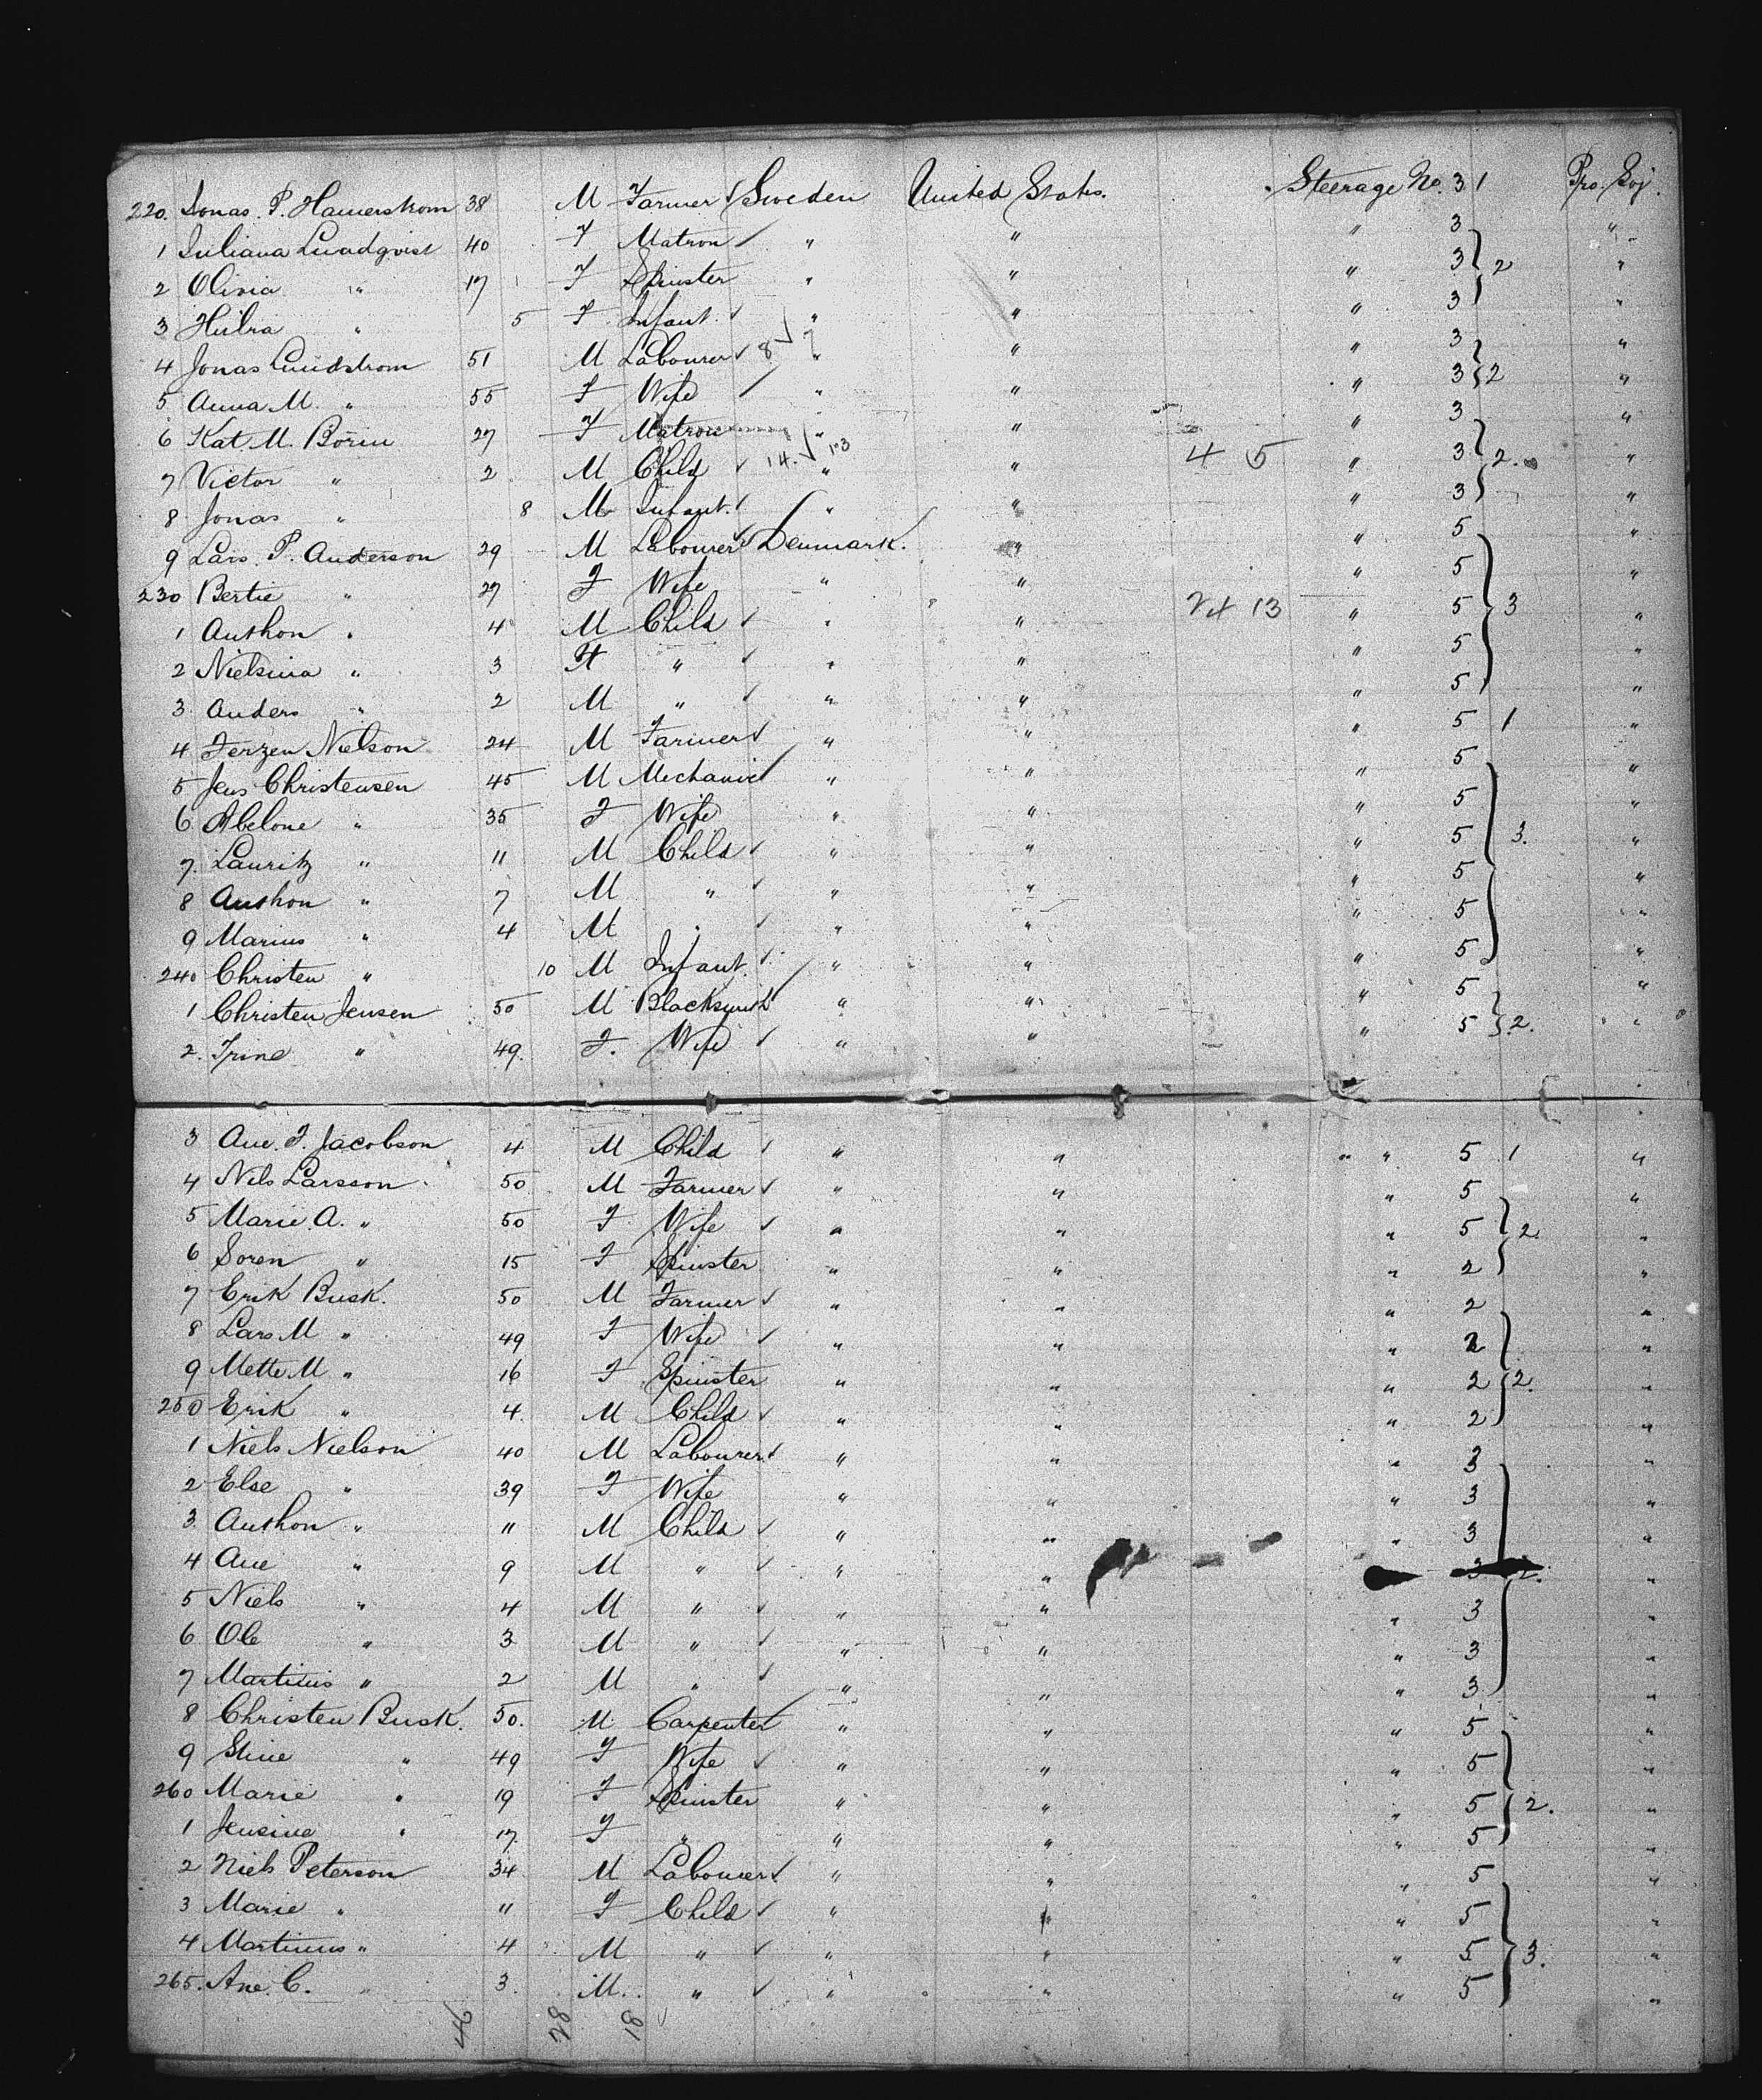 220. Jonas. P. Hamerstrom 38 M Farmer Sweden United States. Steerage No. 3 1 Pro. Soj.
1 Juliana Lundqvist 40 F Matron " " " 3 "
2 Olivia " 17 F Spinster " " " 3 2 "
3 Hulra " 5 F Infant. " " " 3 "
4 Jonas Lundstrom 51 M Labourer 8 7 " " " 3 "
5 Anna M. " 55 F Wife " " " 3 2 "
6 Kat. M. Borin 27 F Matron " " " 3 "
7 Victor " 2 M Child 14. 13 " " 4 5 " 3 2. "
8 Jonas " 8 M Infant. " " " 3 "
9 Lars. P. Anderson 29 M Labourer Denmark. " " 5 "
230 Bertie " 27 F Wife " " " 5 "
1 Anthon " 4 M Child " " 24 13 " 5 3 "
2 Nielsina " 3 F " " " " 5 "
3 Anders " 2 M " " " " 5 "
4 Jerzen Nielson 24 M Farmer " " " 5 1 "
5 Jens Christensen 45 M Mechanic " " " 5 "
6 Abelone " 35 F Wife " " " 5 "
7. Lauritz " 11 M Child " " " 5 3. "
8 Anthon " 7 M " " " " 5 "
9 Marius " 4 M " " " " 5 "
240 Christen " 10 M Infant. " " " 5 "
1 Christen Jensen 50 M Blacksmith " " " 5 "
2. Trine " 49. F. Wife " " " 5 2. "
3 Ane. F. Jacobson 4 M Child " " " 5 1 "
4 Nils Larsson 50 M Farmer " " " 5 "
5 Marie. A. " 50 F Wife " " " 5 2 "
6 Soren " 15 F Spinster " " " 2 "
7 Erik Busk. 50 M Farmer " " " 2 "
8 Lars M " 49 F Wife " " " 2 "
9 Mette M " 16 F Spinster " " " 2 2. "
250 Erik " 4. M Child " " " 2 "
1 Niels Nielson 40 M Labourer " " " 3 "
2 Else " 39 F Wife " " " 3 "
3. Anthon " 11 M Child " " " 3 "
4 Ane " 9 M " " " 3 2. "
5 Niels " 4 M " " " " 3 "
6 Ole " 3 M " " " " 3 "
7 Martinis " 2 M " " " " 3 "
8 Christen Busk. 50. M Carpenter " " " 5 "
9 Stine " 49 F Wife " " " 5 "
260 Marie " 19 F Spinster " " " 5 2. "
1 Jensine " 17. F " " " " 5 "
2 Niels Peterson 34 M Labourer " " " 5 "
3 Marie " 11 F Child " " " 5 "
4 Martinus " 4 M " " " " 5 3. "
265. Ane. C. " 3 M. " " " " 5 "
46 28 18